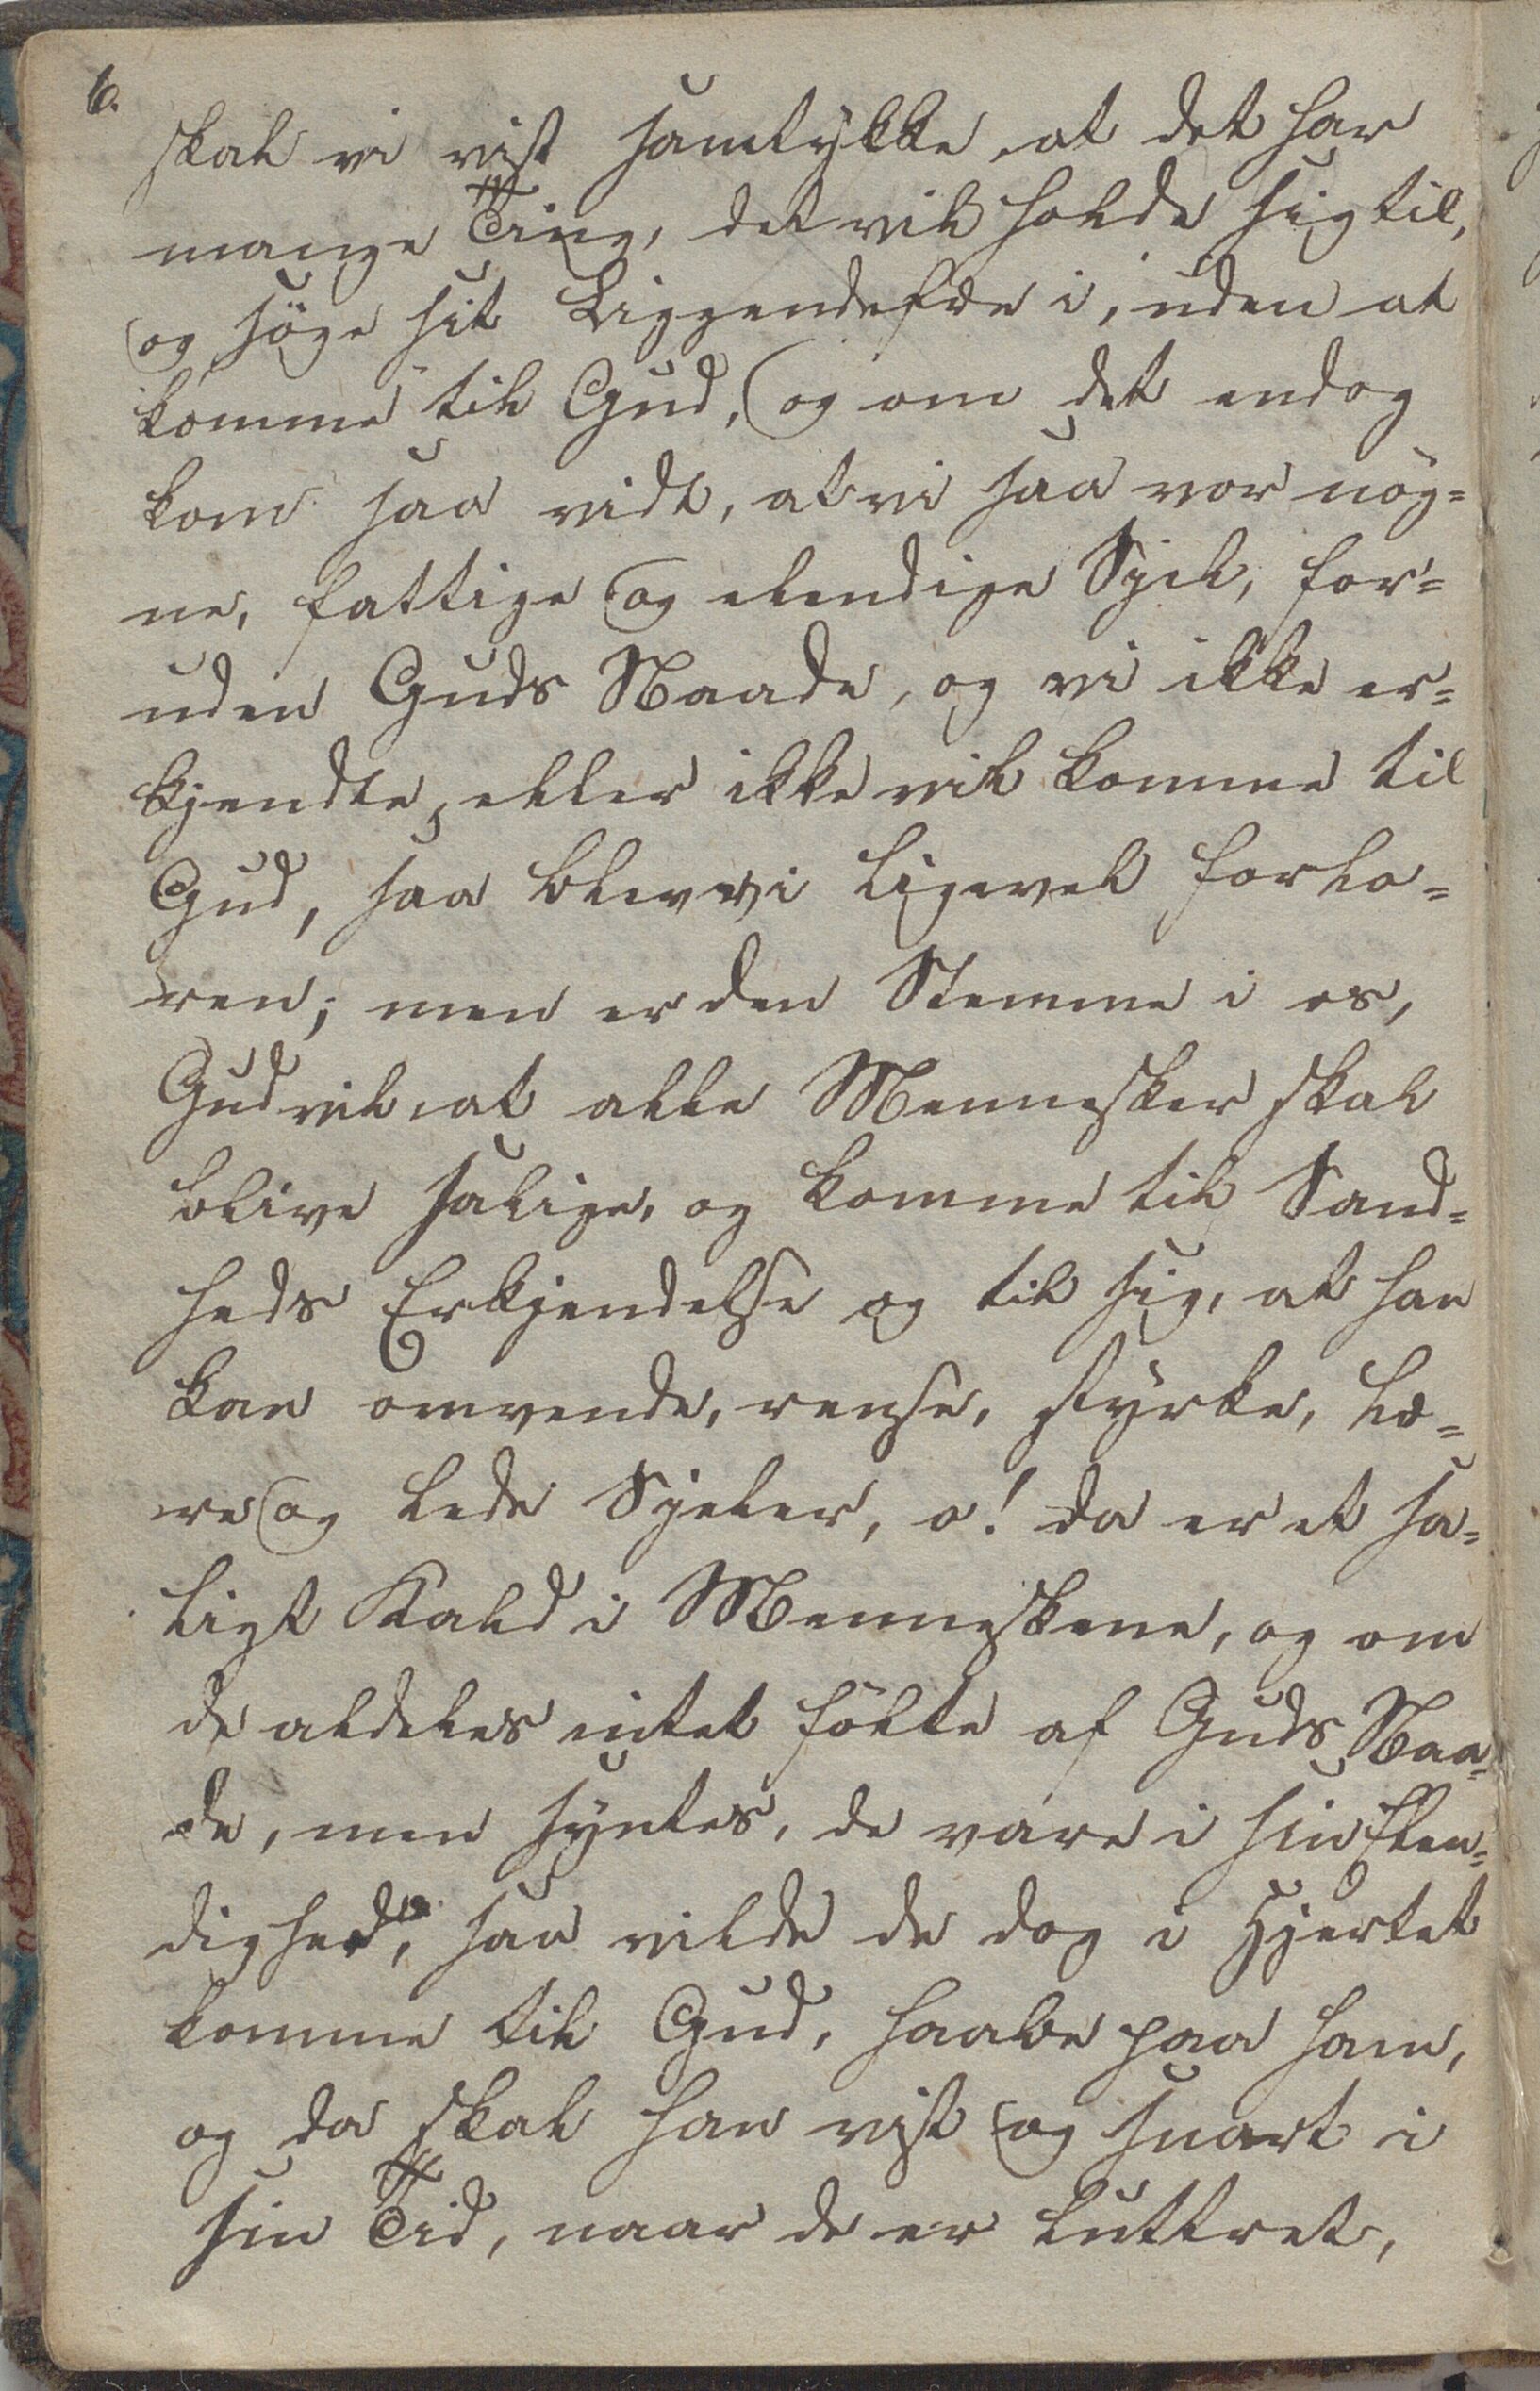 6.
skal vi vist samtykke, at det har
mange Ting, det vil holde sig til,
og søge sit Liggendefæ i, uden at
komme til Gud, og om det endog
kom saa vidt, at vi saa vor nøg=
ne, fattige og elendige Sjel, for=
uden Guds Naade, og vi ikke er=
kjendte, eller ikke vil komme til
Gud, saa blev vi ligevel forlo=
ren; men er den Stemme i os,
Gud vil, at alle Mennesker skal
blive salige, og komme til Sand=
heds Erkjendelse og til sig, at han
kan omvende, rense, styrke, læ=
re og lede Sjeler, o! da er et sa=
ligt Kald i Menneskene, og om
de aldeles intet følte af Guds Naa=
de, men syntes, de vare i sin Elen=
dighed, saa vilde de dog i Hjertet
komme til Gud, haabe paa ham,
og da skal han vist og snart i
sin Tid, naar de er luttret,